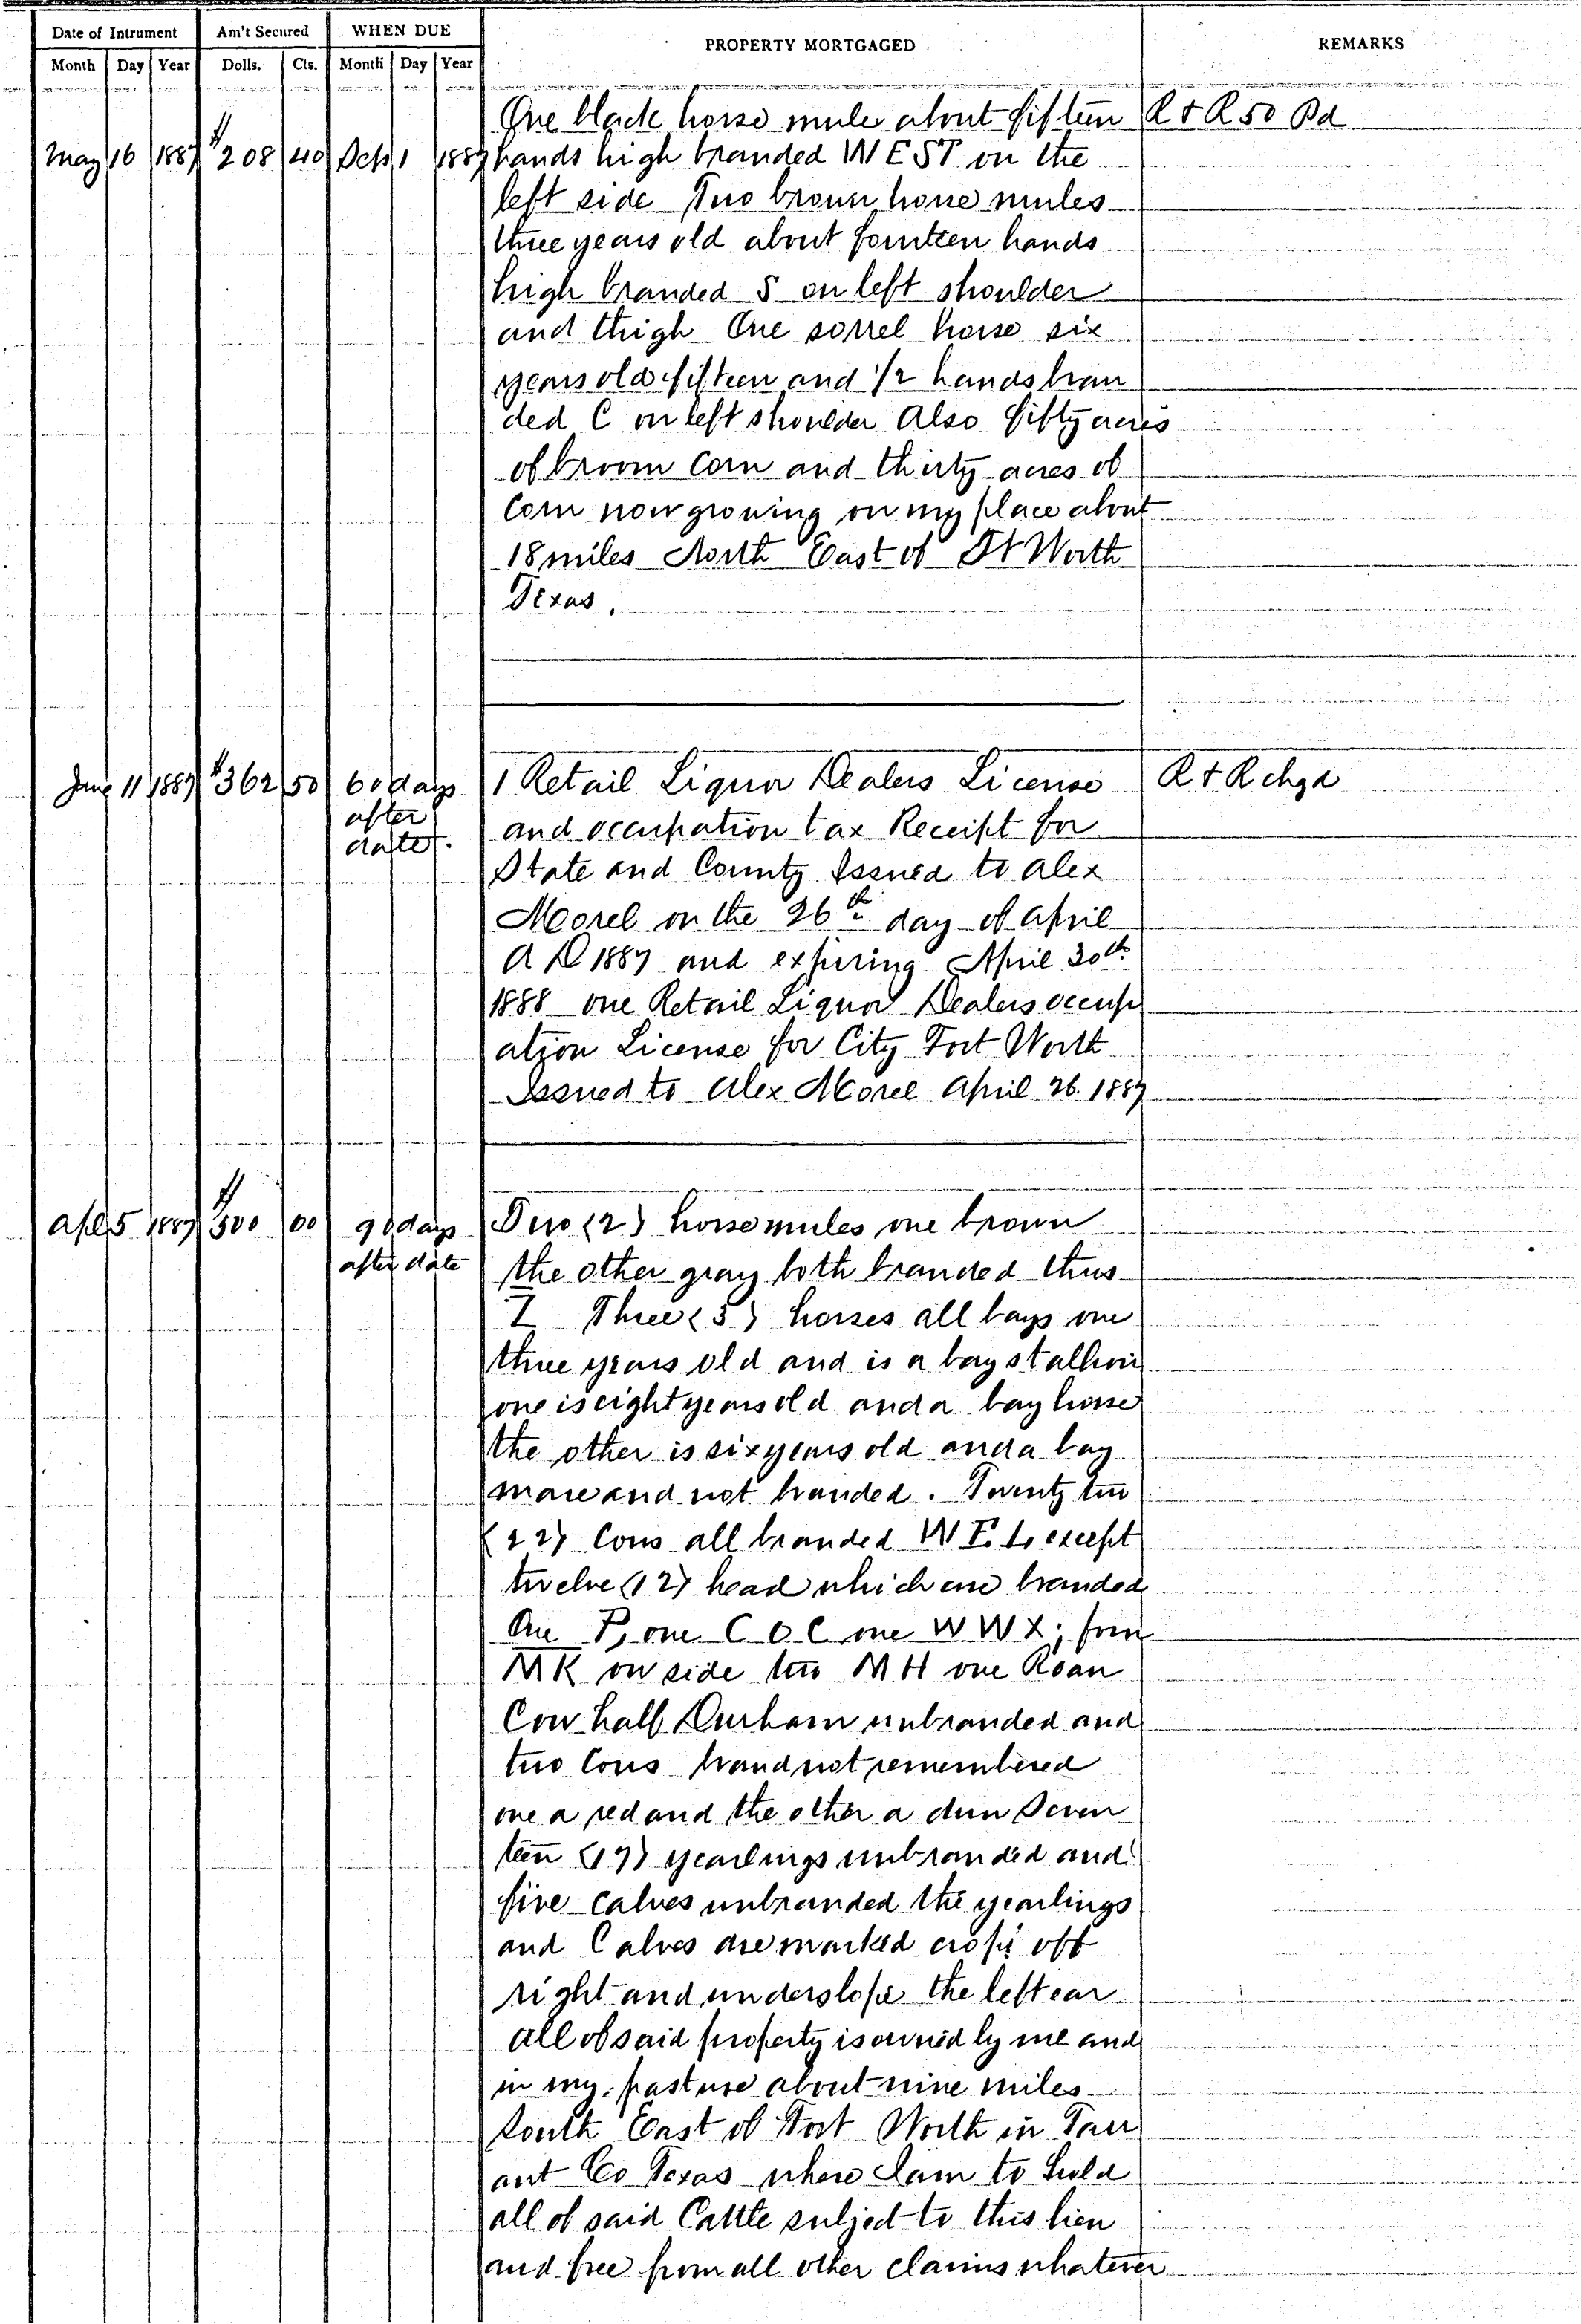 Date of Intrument Am't Secured WHEN DUE PROPERTY MORTGAGED REMARKS
Month Day Year Dolls. Cts. Month Day Year
One black horse mule about fifteen R & R 50 Pd
May 16 1887 $208 40 Oct 1 1887 hands high branded WEST on the
left side Two brown horse mules
three years old about fourteen hands
high branded S on left shoulder
and thigh One sorrel horse six
years old fifteen and 1/2 hands bran
ded C on left shoulder Also fifty acres
of broom Corn and thirty acres of
Corn now growing on my place about
18 miles North East of Ft Worth
Texas.
June 11 1887 $362 50 60 days 1 Retail Liquor Dealers License R & R chgd
after
date. and occupation tax Receipt for
State and County Issued to Alex
Morel on the 26th day of April
A D 1887 and expiring April 30th
1888 one Retail Liquor Dealers occup
ation License for City Fort Worth
Issued to Alex Morel April 26. 1887
Apl 5 1887 $500 00 90 days Two (2) horse mules one brown
after date the other gray both branded thus
Z Three (3) horses all bays one
three years old and is a bay stallion
one is eight years old and a bay horse
the other is six years old and a bay
mare and not branded. Twenty two
(22) Cows all branded W E L except
twelve (12) head which are branded
One P, one C O C one W W X; four
MK on side two M H one Roan
Cow half Durham unbranded and
two Cows brand not remembered
one a red and the other a dun Seven
teen (17) yearlings unbranded and
five calves unbranded the yearlings
and Calves are marked crope off
right and underslope the left ear
all of said property is owned by me and
in my pasture about nine miles
South East of Fort Worth in Tarr
ant Co Texas where I am to hold
all of said Cattle subject to this lien
and free from all other claims whatever